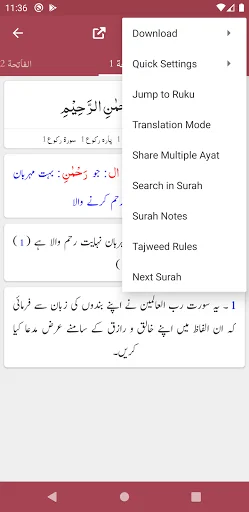 11:36
الفَاتِحَة 2
1 ة
Download
Quick Settings
Jump to Ruku
Translation Mode
Share Multiple Ayat
Search in Surah
Surah Notes
Tajweed Rules
Next Surah
الرَّحِيْمِ
پارہ رکوع 1 سورۃ رکوع 1
ال: جو رَحْمٰنِ: بہت مہربان
رحم کرنے والا
نہایت رحم والا ہے (1)
1 ۔ یہ سورت رب العالمین نے اپنے بندوں کی زبان سے فرمائی
کہ ان الفاظ میں اپنے خالق و رازق کے سامنے عرض مدعا کیا
کریں۔